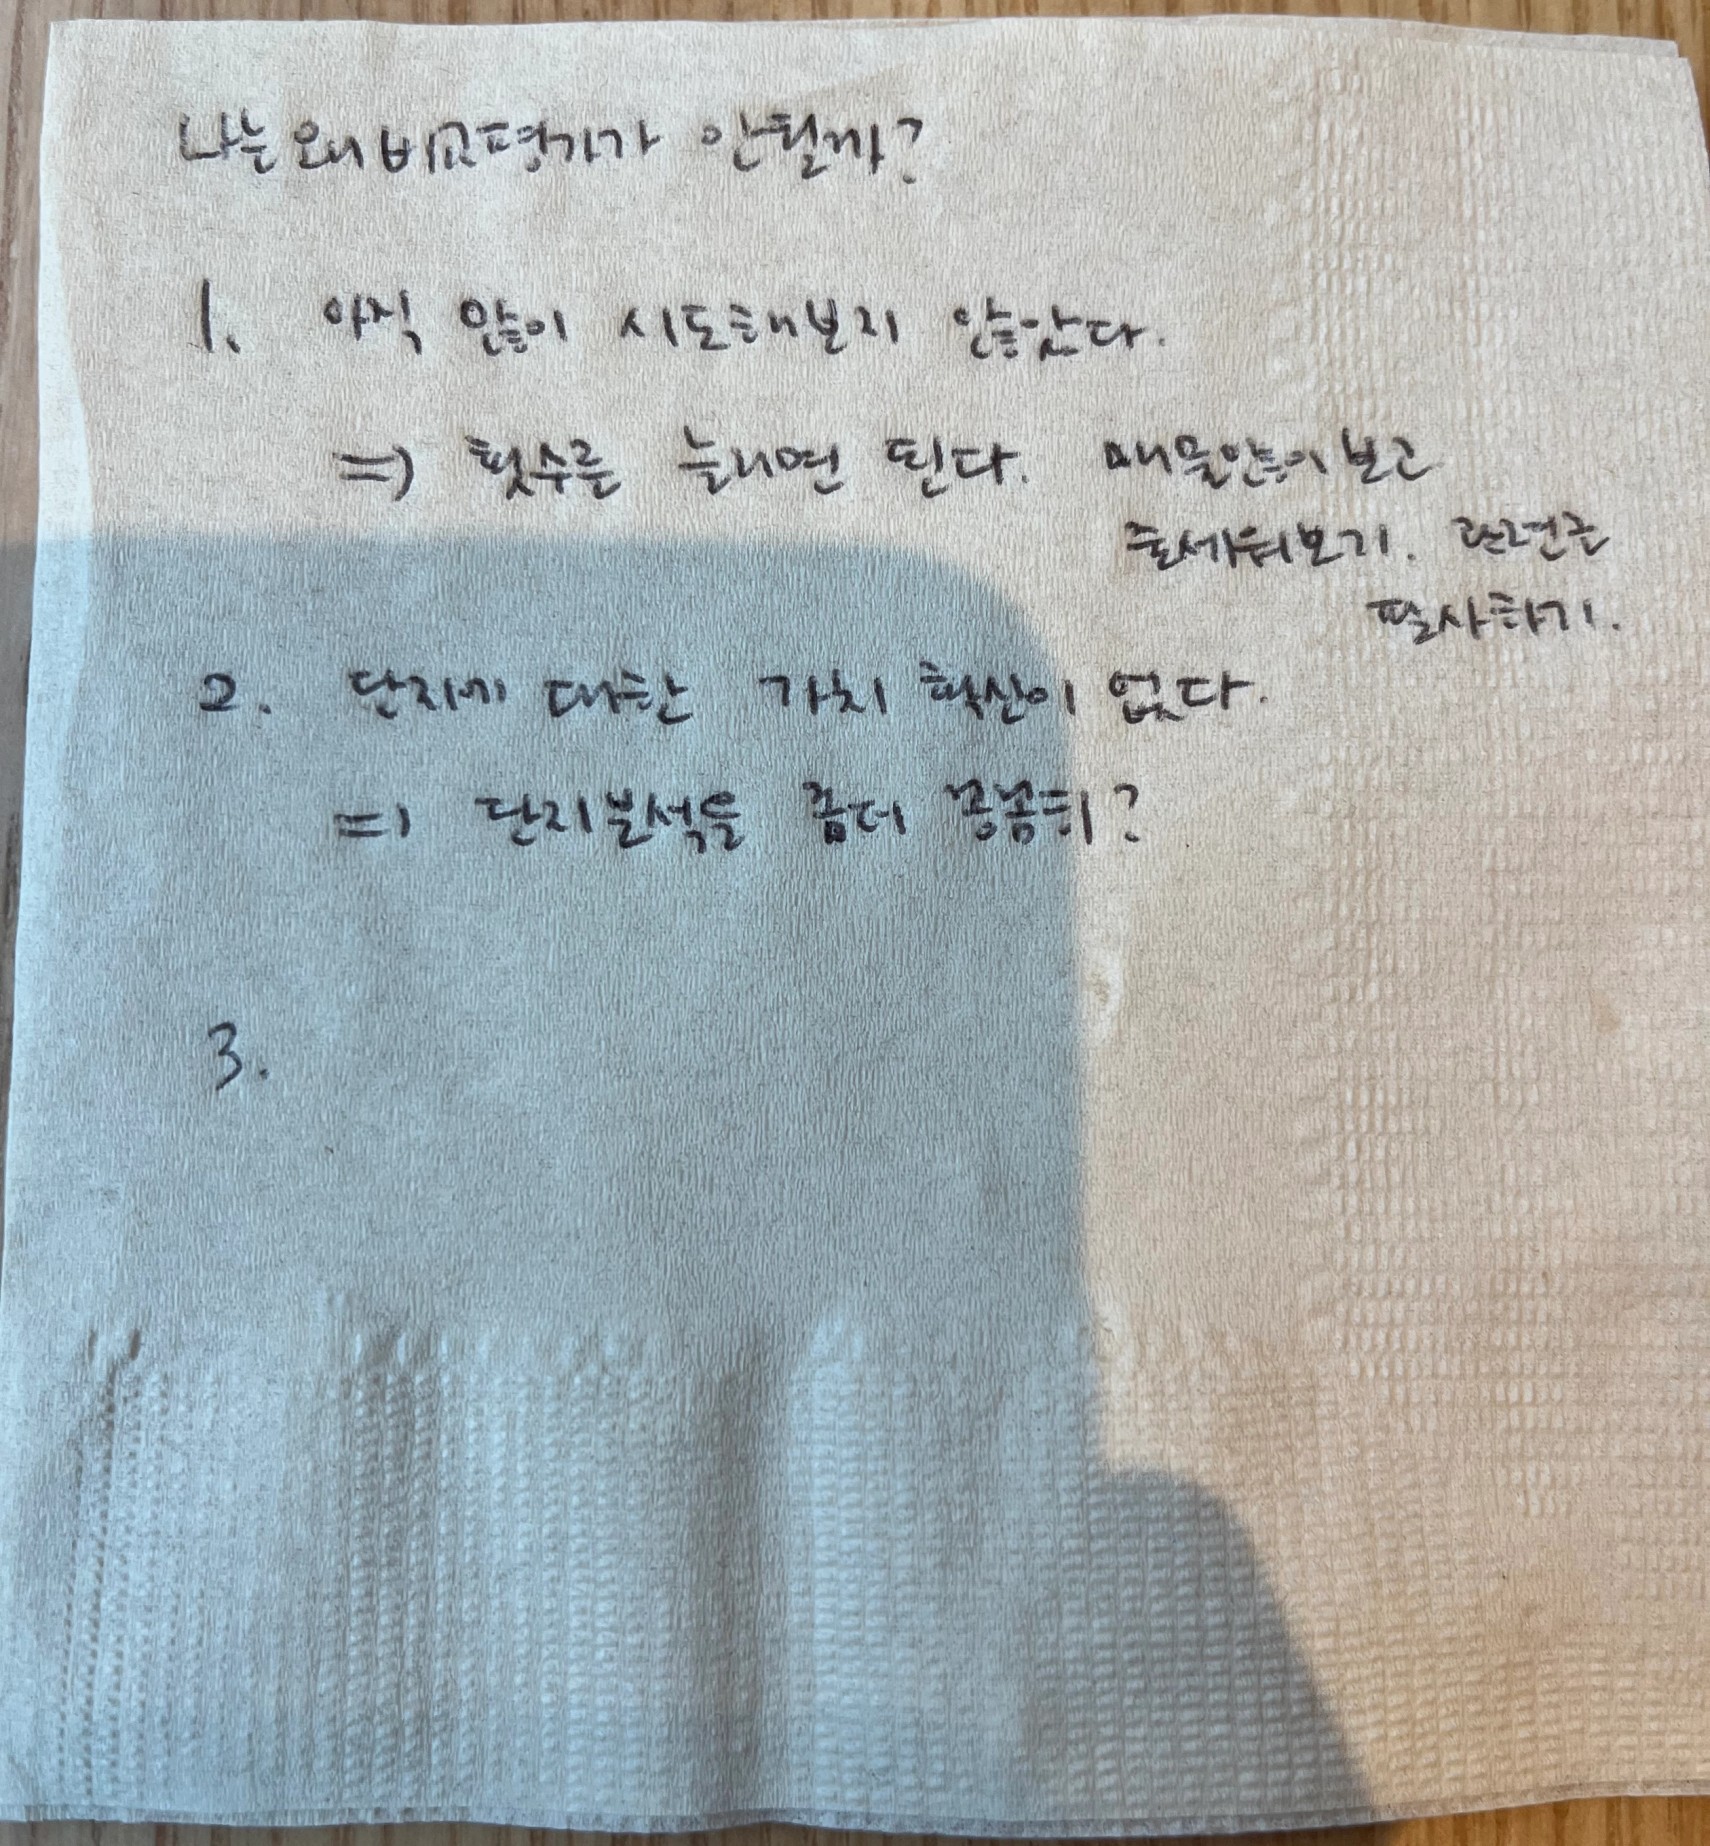 나는 왜 비교평가가 안될까?
1. 아직 많이 시도해보지 않았다.
=> 횟수를 늘리면 된다. 매물많이 보고
줄세워보기. 관련글
필사하기.
2. 단지에 대한 가치 확신이 없다.
=> 단지분석을 좀더 꼼꼼히?
3.